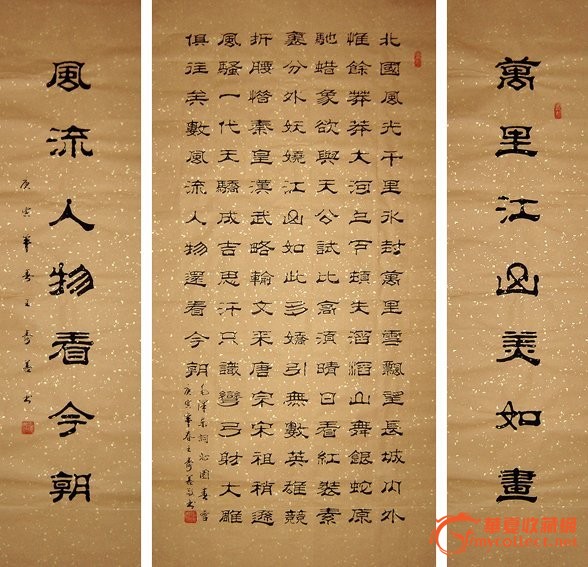 萬里江山美如畫
北國風光千里冰封萬里雪飄望長城內外
惟餘莽莽大河上下頓失滔滔山舞銀蛇原
馳蜡象欲與天公試比高須晴日看紅裝素
裹分外妖嬈江山如此多嬌引無數英雄競
折腰惜秦皇漢武略輸文采唐宗宋祖稍遜
風騷一代天驕成吉思汗只識彎弓射大雕
俱往矣數風流人物還看今朝
毛澤東詞沁園春雪
庚寅年春王書
風流人物看今朝
庚寅年春王書
華夏收藏網
mycollect.net